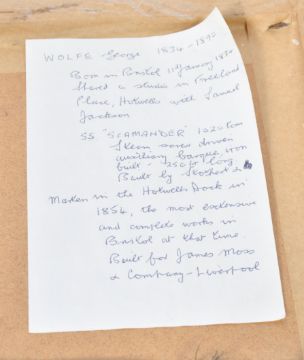 WOLFE George 1834-1890
Born in Bristol 11 January 1834
Shared a studio in Freeland
Place, Hotwells with Samuel
Jackson
SS "SCAMANDER" 1020 tons
Steam screw driven
auxiliary barque iron
built - 250 ft long
Built by Stothert &
Marten in the Hotwells Dock in
1854, the most extensive
and complete works in
Bristol at that time.
Built for James Moss
& Company - Liverpool